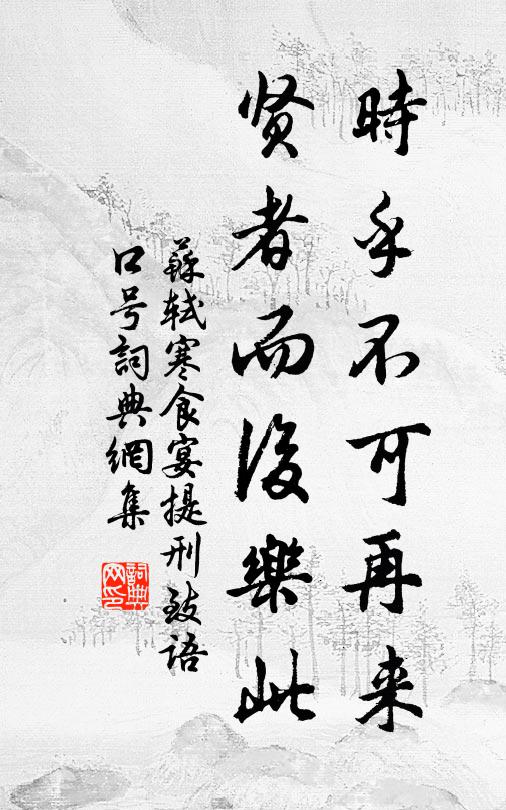 時乎不可再来
贤者而後樂此
蘇轼寒食宴提刑致语
口号詞典網集
詞典网印